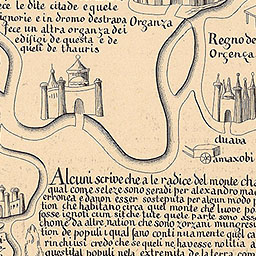 ece le dite citade e quele
signorie e in dromo destrapa Organza
fece un altra organza dei
edifiçi de questa e de
queli de thauris
Regno de
Orgença
duana
amaxobi
Alcuni scrive che a le radice del monte cha
qual come seleze sono seradi per alexandro ma
erronea e da non esser sostenuta per algun modo p
tion che habitano circa quel monte che i uove po
osse ignoti cum sit che tute quele parte sono ass
chome da altre nation che sono zorzani mungresi
tion de populi i qual sano continuamente quel ca
rinchiusi credo che se queli ne havesse notitia a
questi tal populi ne la extremita de la terra com